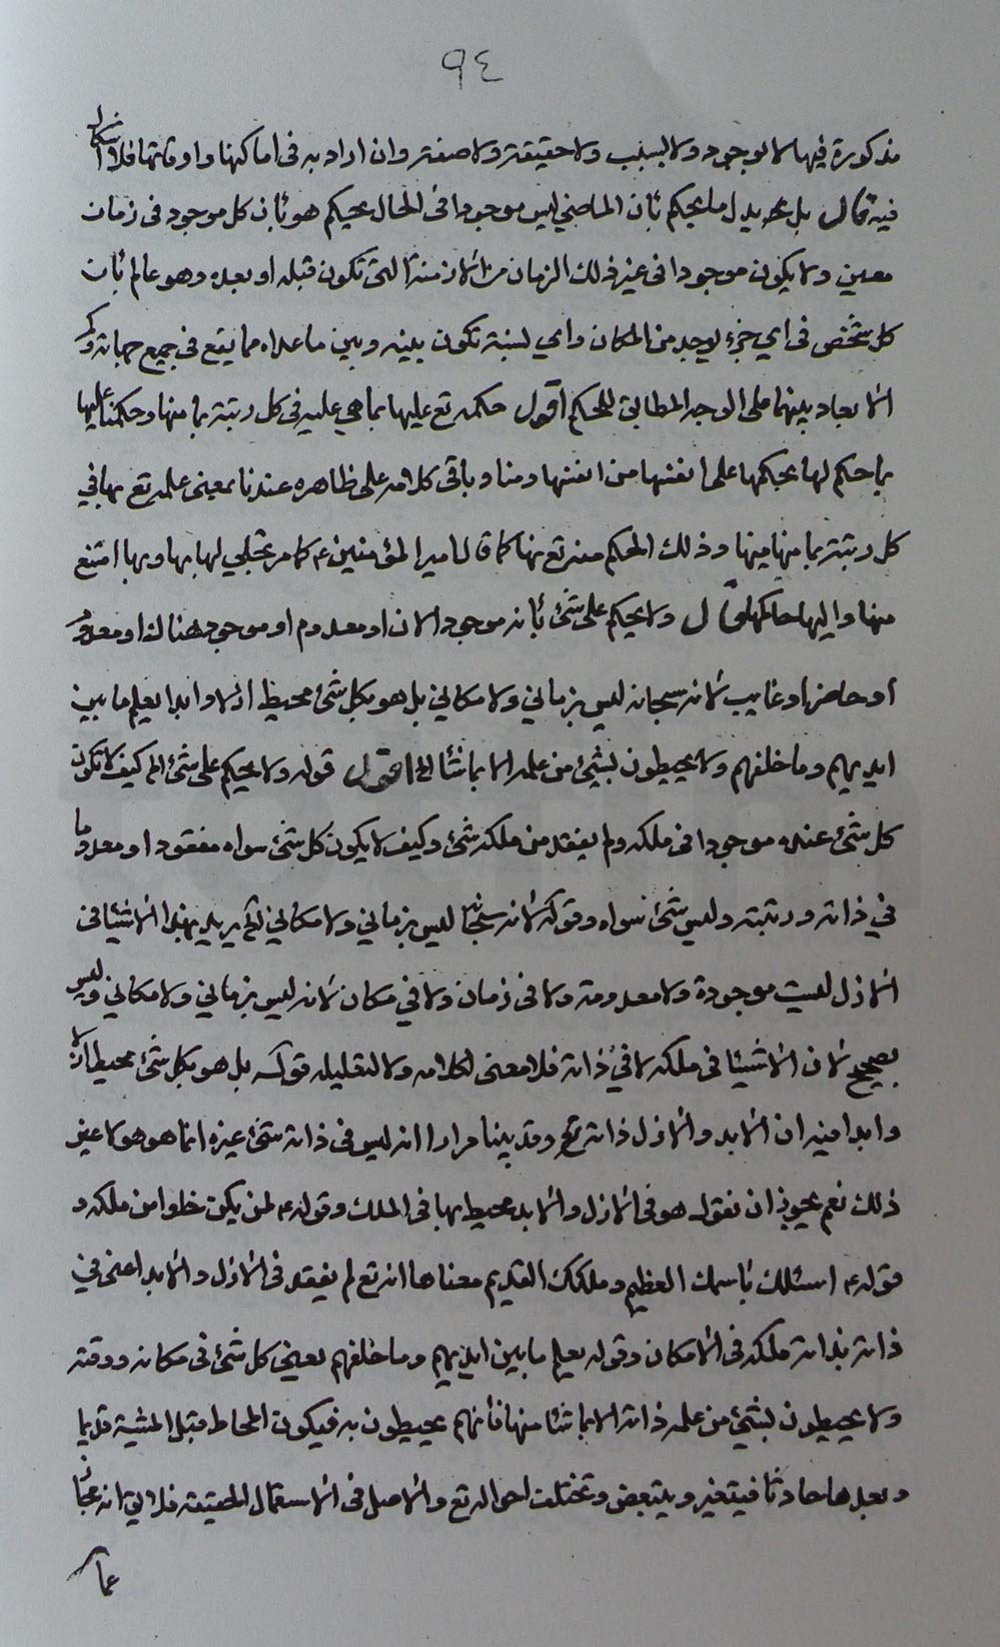 ٩٤
مذكورة فيها لا بوجود ولا بسبب ولا حقيقة ولا صفة وان اراد به فى اماكنها واوقاتها فلا اشكال
فيه قال بل بدل ما يحكم بأن الماضي ليس موجودا فى الحال يحكم هو بأن كل موجود فى زمان
معين ولا يكون موجودا فى غير ذلك الزمان من الازمنة التى تكون قبله او بعده وهو عالم بأن
كل شخص فى اي جزء يوجد من المكان واي نسبة تكون بينه وبين ما عداه مما يقع فى جميع جهاته وكم
الابعاد بينهما على الوجه المطابق للحكم اقول حكمه تع عليها بما هي عليه فى كل رتبة بما منها وحكمنا عليها
بما حكم لها بحكمها على انفسها من انفسها ومنا وباقى كلامه على ظاهره عندنا بمعنى علمه تع بها في
كل رتبة بما منها فيها وذلك الحكم منه تع بها كما قال امير المؤمنين ع كما مر تجلى لها بها وبها امتنع
منها واليها حاكمها قال ولا يحكم على شئ بأنه موجود الان او معدوم او موجود هناك او معدوم
او حاضر او غايب لانه سبحانه ليس بزماني ولا مكاني بل هو بكل شئ محيط ازلا وابدا يعلم ما بين
ايديهم وما خلفهم ولا يحيطون بشئ من علمه الا بما شاء الخ اقول قوله ولا يحكم على شئ الخ كيف لا تكون
كل شئ عنده موجودا فى ملكه ولم يفقد من ملكه شئ وكيف لا يكون كل شئ سواه مفقودا او معدوما
في ذاته ورتبته وليس شئ سواه وقوله لانه سبحانه ليس بزماني ولا مكاني الخ يريد بهذا الاشياء فى
الازل ليست موجودة ولا معدومة ولا فى زمان ولا في مكان لانه ليس بزماني ولا مكاني وليس
بصحيح لان الاشياء فى ملكه لا في ذاته فلا معنى لكلامه ولا لتعليله قوله بل هو بكل شئ محيط ازلا
وابدا فيه ان الابد والازل ذاته تع وقد بينا مرارا انه ليس فى ذاته شئ غيره انما هو هو لا غير
ذلك نعم يجوز ان نقول هو فى الازل والابد محيط بها فى الملك وقوله ع لم يكن خلوا من ملكه و
قوله ع اسئلك باسمك العظيم وملكك القديم معناها انه تع لم يفقد فى الازل والابد اعنى في
ذاته بذاته ملكه فى الامكان وقوله يعلم ما بين ايديهم وما خلفهم يعني كل شئ فى مكانه ووقته
ولا يحيطون بشئ من علمه ذاته الا بما شاء منها فأنهم يحيطون به فيكون المحاط قبل المشية قديما
وبعدها حادثا فيتغير ويتبعض وتختلف احواله تع والاصل فى الاستعمال الحقيقة فلا يق انه